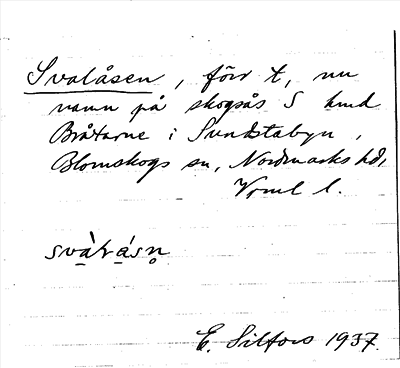 Svalåsen, förr t, nu
namn på skogsås S hmd
Bråtarne i Sundstabyn,
Blomskogs sn, Nordmarks hd,
Vrml l.
svàlásn̥
E. Silfors 1937.